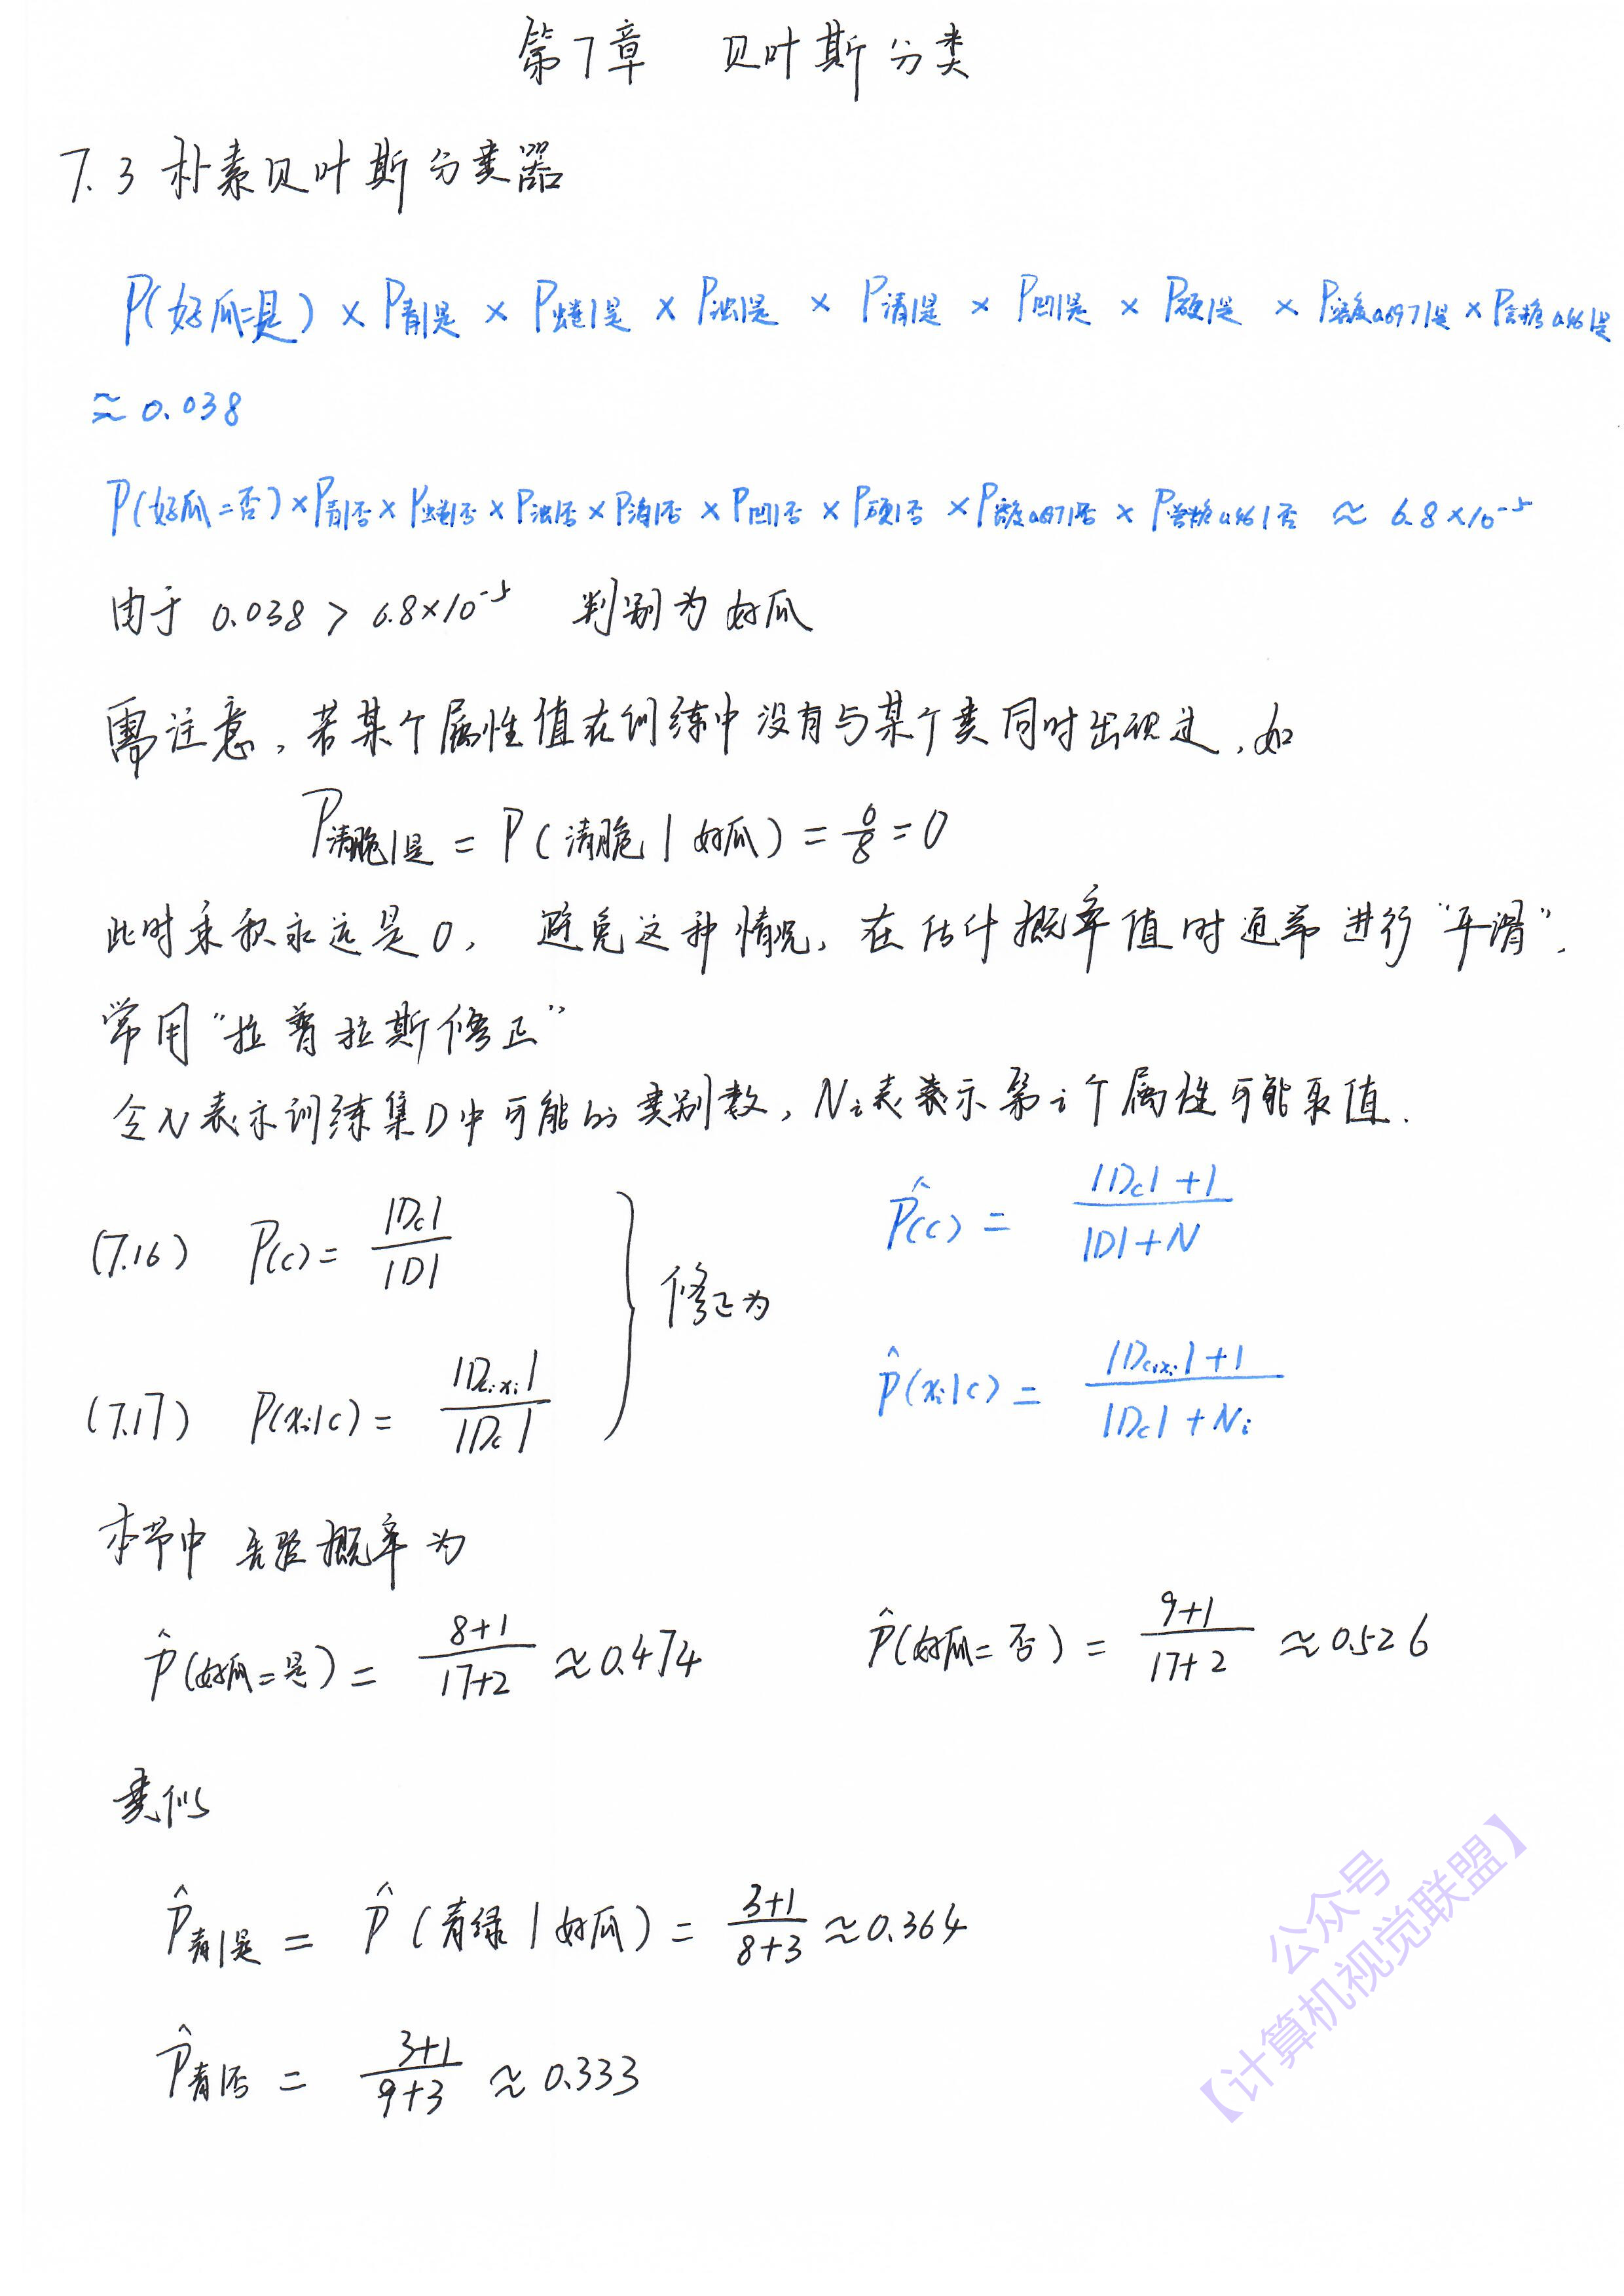 第7章 贝叶斯分类
7.3 朴素贝叶斯分类器
P(好瓜=是) × P青|是 × P蜷|是 × P浊|是 × P清|是 × P凹|是 × P硬|是 × P密度0.697|是 × P含糖0.46|是
≈ 0.038
P(好瓜=否) × P青|否 × P蜷|否 × P浊|否 × P清|否 × P凹|否 × P硬|否 × P密度0.697|否 × P含糖0.46|否 ≈ 6.8×10⁻⁵
由于 0.038 > 6.8×10⁻⁵ 判别为好瓜
需注意,若某个属性值在训练中没有与某个类同时出现过,如
P清脆|是 = P(清脆|好瓜) = 0/8 = 0
此时乘积永远是0, 避免这种情况,在估计概率值时通常进行“平滑”,
常用“拉普拉斯修正”
令N表示训练集D中可能的类别数,Ni表示第i个属性可能取值.
(7.16) P(c) = |Dc| / |D| 修正为 P̂(c) = (|Dc|+1) / (|D|+N)
(7.17) P(xi|c) = |Dc,xi| / |Dc| P̂(xi|c) = (|Dc,xi|+1) / (|Dc|+Ni)
本节中 先验概率为
P̂(好瓜=是) = (8+1)/(17+2) ≈ 0.474 P̂(好瓜=否) = (9+1)/(17+2) ≈ 0.526
类似
P̂青|是 = P̂(青绿|好瓜) = (3+1)/(8+3) ≈ 0.364
P̂青|否 = (3+1)/(9+3) ≈ 0.333
公众号
【计算机视觉联盟】